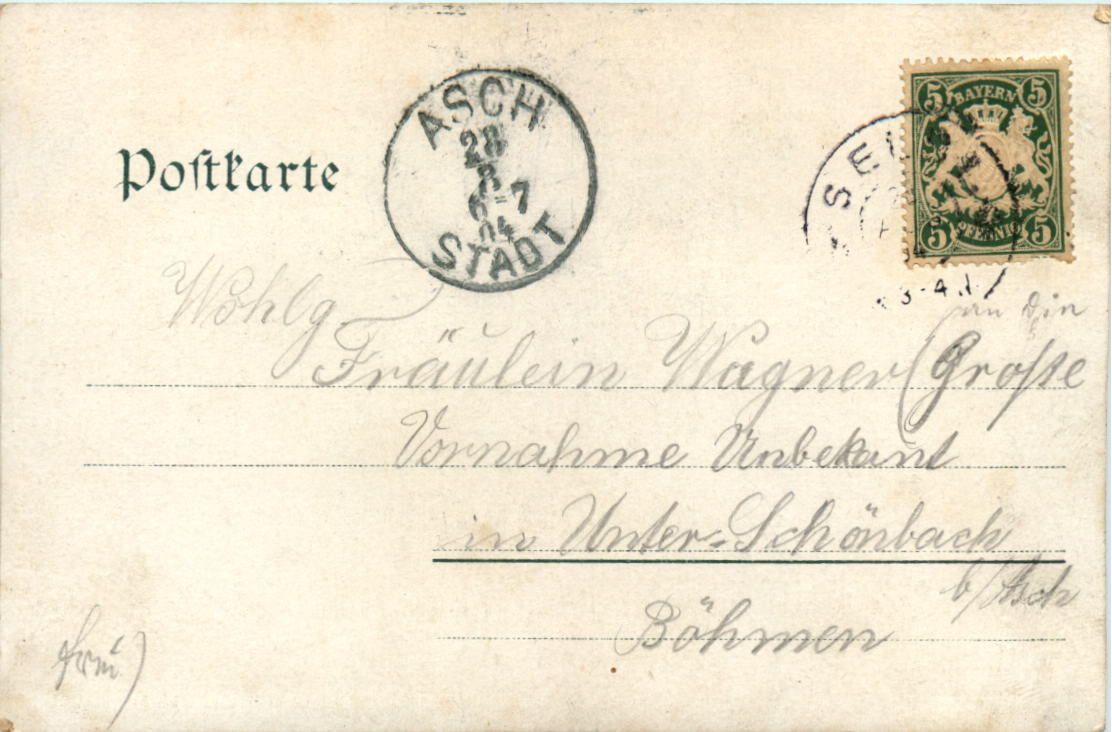 Postkarte
ASCH
28
8
6-7
04
STADT
BAYERN
5 5
5 5
PFENNIG
SEL
3-4
Wohlg.
an din
Fräulein Wagner (Große
Vornahme Unbekant
in Unter-Schönbach
b/Asch
Böhmen
frei)